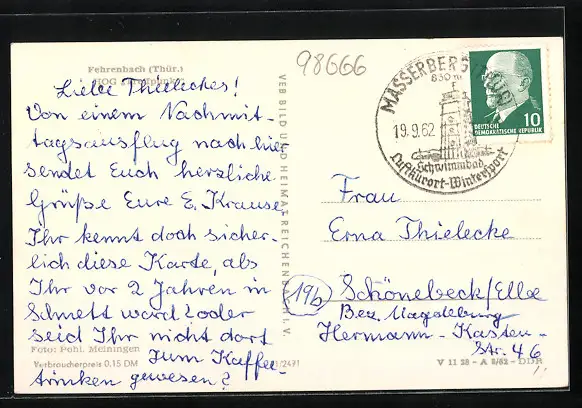 Fehrenbach (Thür.)
HOG
98666
Liebe Thieleckes!
Von einem Nachmit-
tagsausflug nach hier
sendet Euch herzliche
Grüße Eure E. Krause.
Ihr kennt doch sicher-
lich diese Karte, als
Ihr vor 2 Jahren in
Schnett ward oder
seid Ihr nicht dort
zum Kaffee-
trinken gewesen?
Foto: Pohl, Meiningen
Verbraucherpreis 0,15 DM
VEB BILD UND HEIMAT REICHENBACH I. V.
MASSERBERG (THÜR)
830 m
19.9.62
Schwimmbad
Luftkurort-Wintersport
10
DEUTSCHE
DEMOKRATISCHE REPUBLIK
Frau
Erna Thielecke
19b
Schönebeck/Elbe
Bez. Magdeburg
Hermann-Kasten-
Str. 46
V 11 28 - A 2/62 - DDR